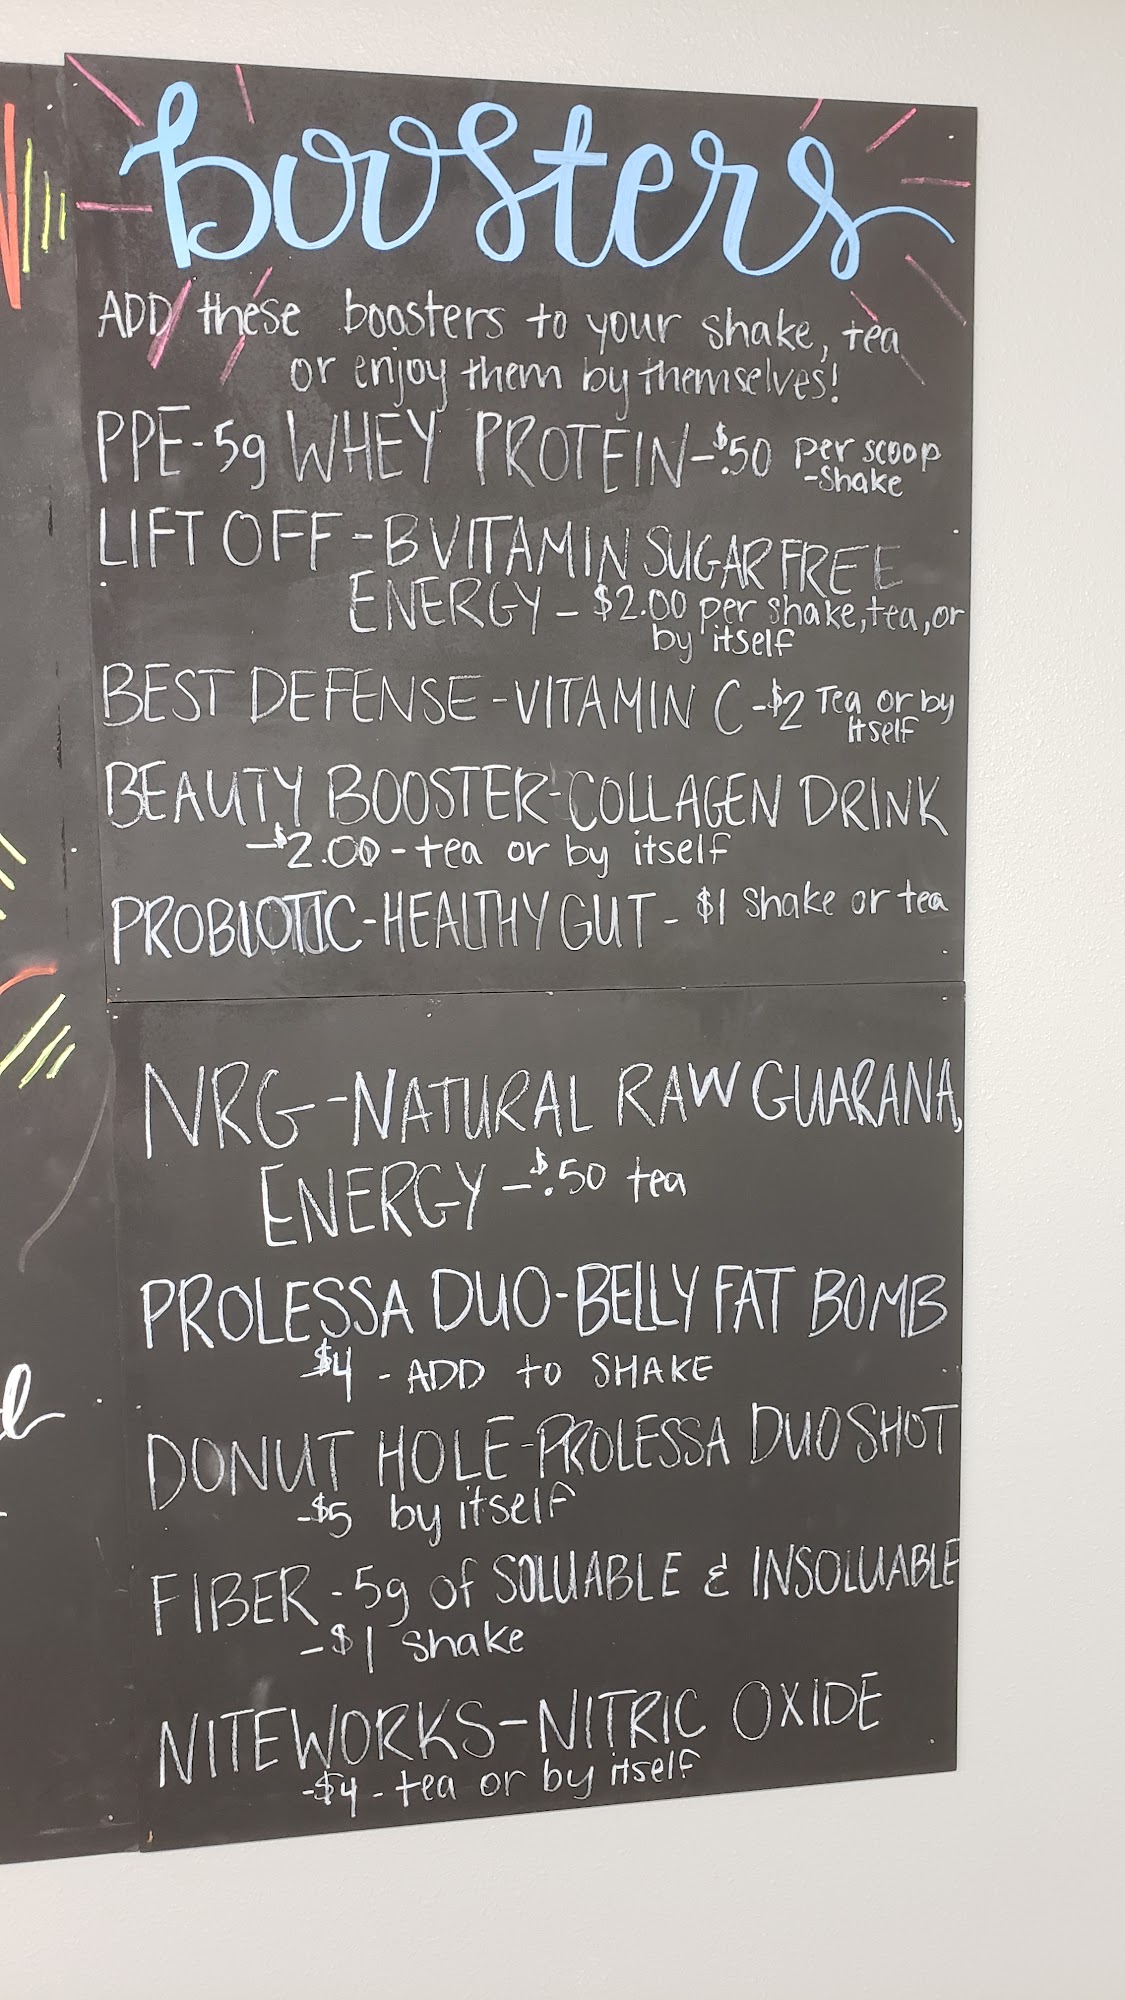 boosters
ADD these boosters to your shake, tea
or enjoy them by themselves!
PPE-5g WHEY PROTEIN-$.50 per scoop
-Shake
LIFT OFF-B VITAMIN SUGAR FREE
ENERGY-$2.00 per shake, tea, or
by itself
BEST DEFENSE-VITAMIN C-$2 Tea or by
itself
BEAUTY BOOSTER-COLLAGEN DRINK
-$2.00-tea or by itself
PROBIOTIC-HEALTHY GUT-$1 Shake or tea
NRG-NATURAL RAW GUARANA,
ENERGY-$.50 tea
PROLESSA DUO-BELLY FAT BOMB
$4 - ADD to SHAKE
DONUT HOLE-PROLESSA DUO SHOT
-$5 by itself
FIBER-5g of SOLUABLE & INSOLUABLE
-$1 Shake
NITEWORKS-NITRIC OXIDE
-$4-tea or by itself